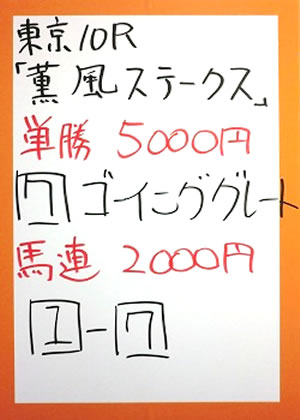 東京10R
「薫風ステークス」
単勝 5000円
7 ゴーインググレート
馬連 2000円
1-7